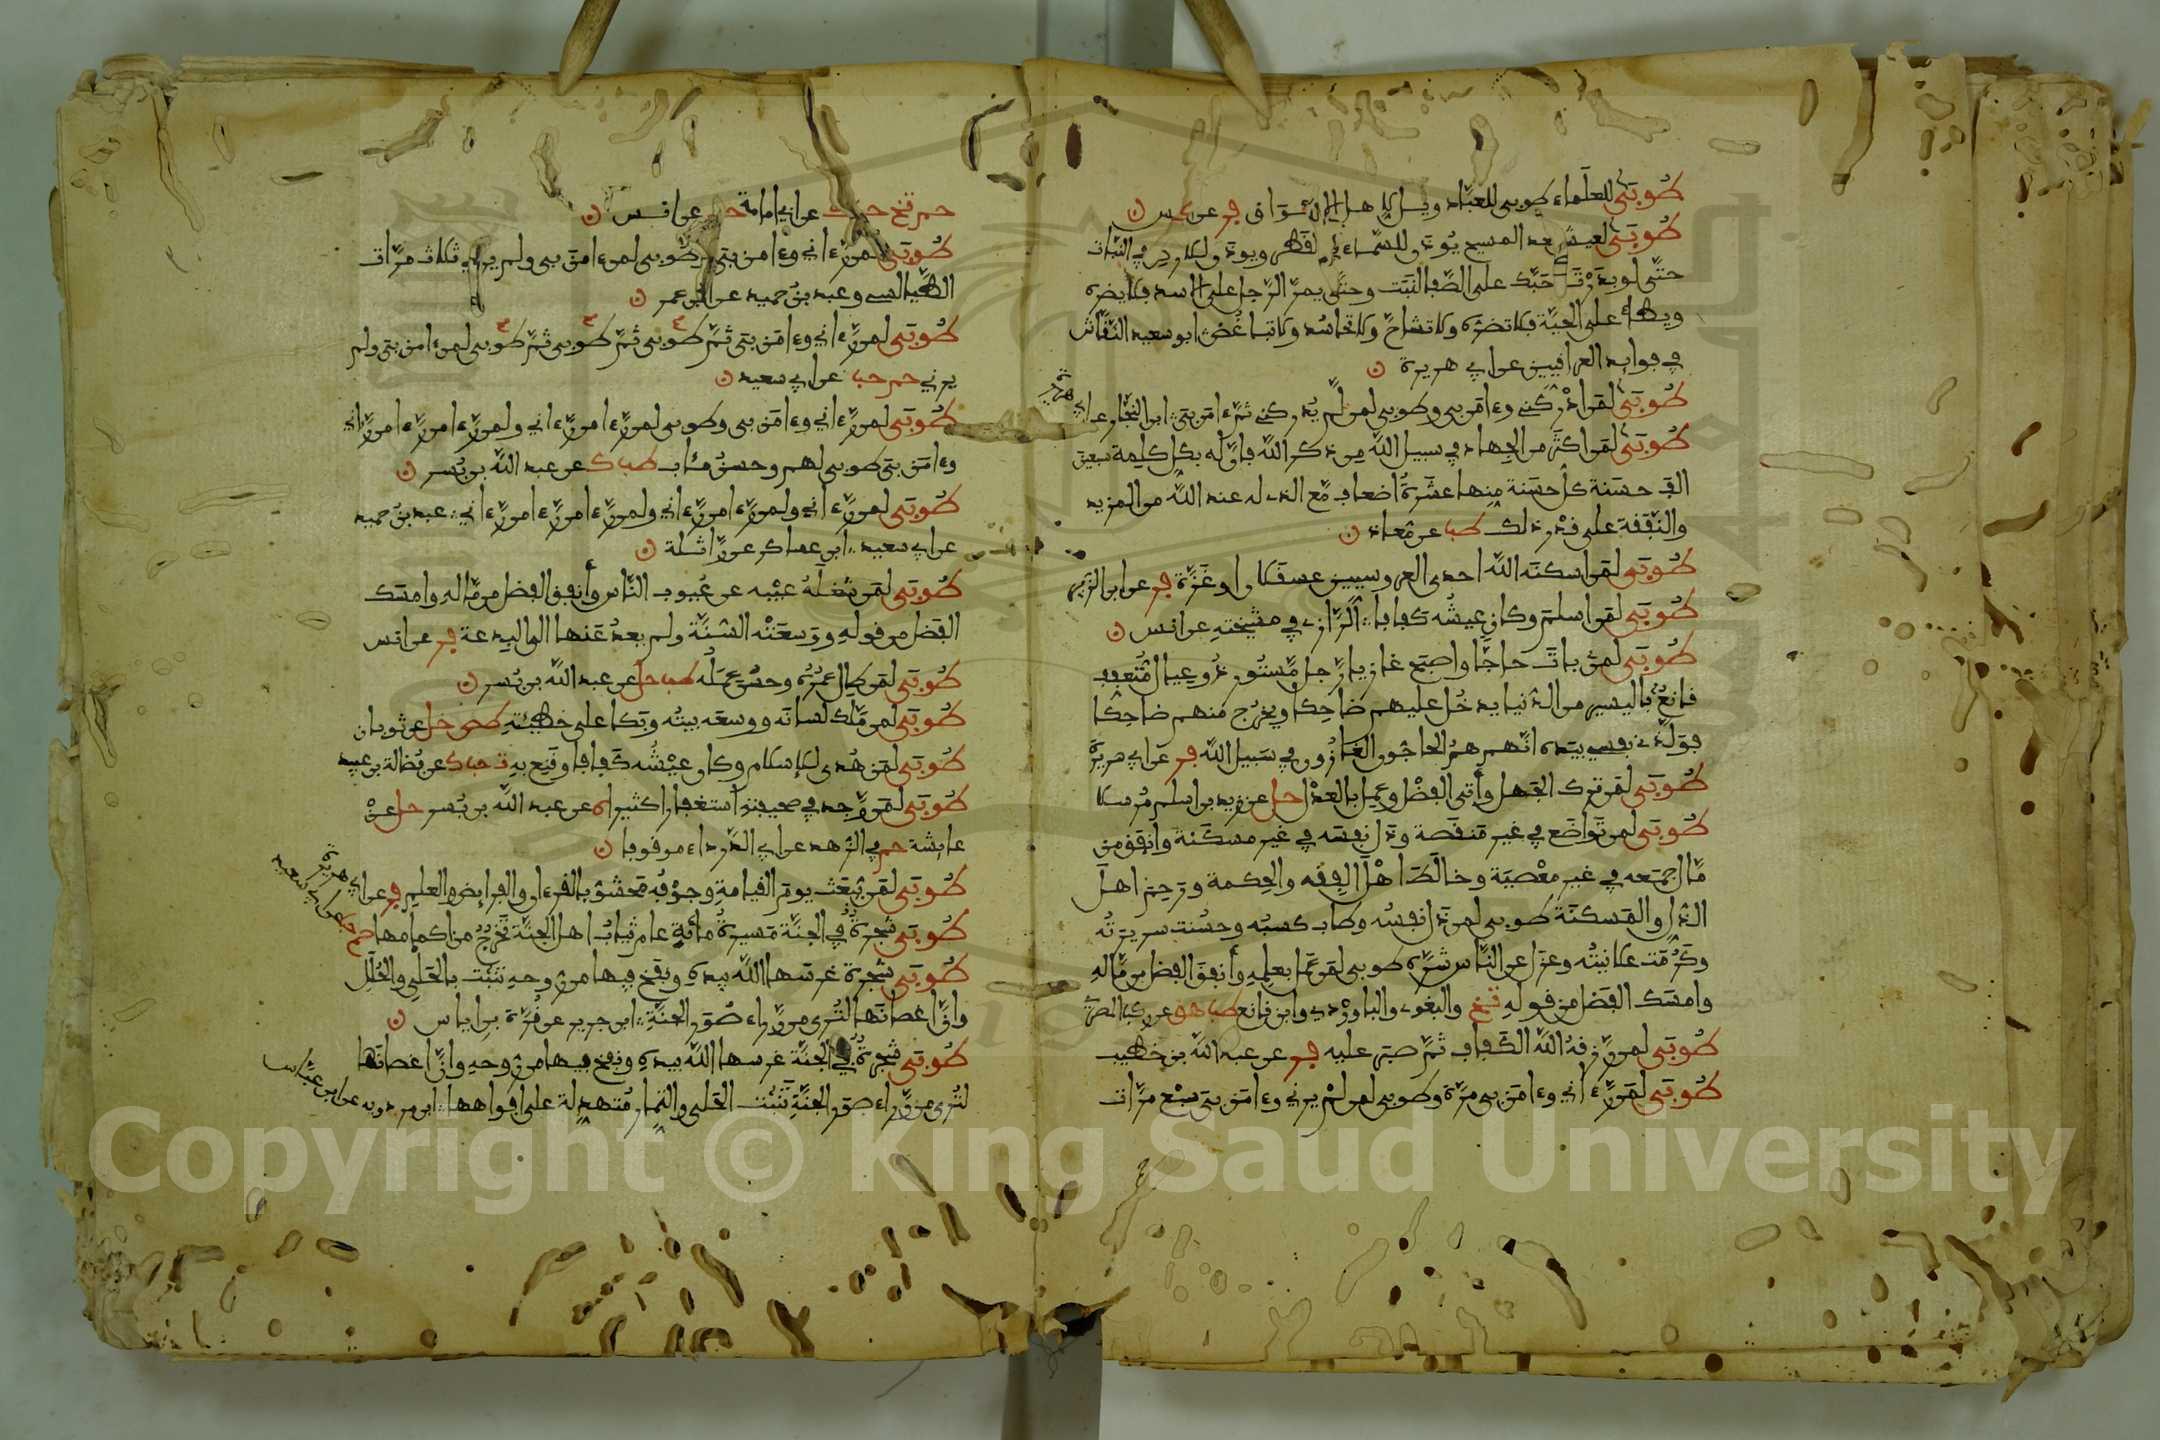 طُوبَى للعلَماء طوبى للعبّاد ويل لاهل الاسواق فر عن انس
طُوبَى لعيش بعد المسيح يُوذن للسّماء في القطر ويوذن للارض في النّبات
حتّى لو بذرْتَ حبّك على الصّفا لنبَت وحتّى يمرّ الرّجل على الاسد فلا يضره
ويطأ على الحيّة فلا تضرّه ولا تشاحّ ولا تحاسُد ولا تباغُض ابو سعيد النّقّاش
في فوايد العراقيين عن ابي هريرة
طُوبَى لمَن ادْركَني وءامَن بي وطوبى لمن لّم يُدركني ثمّ ءامَن بي ابن النجّار عن ابي هريرة
طُوبَى لمَن اكثَر من الجِهاد في سبيل اللّه من ذكر اللّه فإنّ له بكل كلِمة سبعين
الف حسَنة كل حسَنة مِنها عشَرةُ اضعاف مّع الذي له عند اللّه من المزيد
والنّفقة على قدْر ذلك طب عن مّعاذ
طُوبَى لمَن اسكنَه اللّه احدى العروسيين عسقلان او غَزّة فر عن ابن الزبير
طُوبَى لمَن اسلمَ وكان عيشُه كفافا الرّازي في مشيختهِ عن انس
طُوبَى لمن بات حاجّا واصبح غازيا رّجل مّستُور ذُو عِيال مّتعفف
قانعٌ باليسير من الدّنيا يدخُل عليهم ضاحِكا ويخرُج منهم ضاحِكا
فوَالّذي نفسي بيَده انّهم هُمُ الحاجّون الغازُون في سَبيل اللّه فر عن ابي هريرة
طُوبَى لمَن ترك الجَهل وأتى الفضْل وعمِل بالعدْل حل عن زيد بن اسلم مُرسلا
طُوبَى لمن تَواضَع في غير مَنقَصة وذلّ نفسَه في غير مسكَنة وانفَق من
مّال جمعَه في غير معْصيَة وخالَط اهْل الفِقه والحِكمة ورحِمَ اهلَ
الذّل والمَسكنَة طوبى لمن ذلّ نفسُه وطاب كسبُه وحسُنت سريرتُه
وكرُمَت علانيتُه وعزَل عن النّاس شرّه طوبى لمَن عمل بعلمهِ وأنفقَ الفضل من مّالهِ
وامسَك الفَضل من قولهِ تخ والبغوي والباوَرْدي وابن قانع طب هق عن ركب المصريّ
طُوبَى لمن رّزقهُ اللّه الكَفاف ثمّ صبَر عليه فر عن عبد اللّه بن حنطب
طُوبَى لمَن رّءاني وءامَن بي مرّة وطوبى لمن لمْ يرني وءامَن بي سبْع مرّات
حم تخ حب ك عن ابي امامة حم عن انس
طُوبَى لمن رّءاني وءامن بي وطوبى لمن ءامَن بي ولم يرني ثلاث مرّات
الطّيالسي وعبد بنُ حميد عن ابن عمر
طُوبَى لمن رّءاني وءامَن بي ثمّ طوبى ثمّ طوبى ثمّ طوبى لمن ءامَن بي ولم
يرني حم حب عن ابي سعيد
طُوبَى لمن رّءاني وءامَن بي وطوبى لمن رّءا من رّءاني ولمن رّءا من رّءا من رّءاني
وءامَن بي طوبى لهم وحسنُ مئاب طب ك عن عبد اللّه بن بُسر
طُوبَى لمن رّءاني ولمن رّءا من رّءاني ولمن رّءا من رّءا من رّءاني عبد بنُ حميد
عن ابي سعيد ابن عساكر عن وّاثلة
طُوبَى لمَن شغلَهُ عيْبه عن عُيوب النّاس وأنفق الفضل من مّالهِ وامسَك
الفَضل من قولهِ ووَسعَتْه السُنّة ولم يعدُ عَنها الى البدعة فر عن انس
طُوبَى لمَن طال عمُرُه وحسُن عمَلُه طب حل عن عبد اللّه بن بُسر
طُوبَى لمن مّلك لسانَه ووسعَه بيتُه وبَكا على خطيئتهِ طص حل عن ثوبان
طُوبَى لمَن هُدى للاسلام وكان عيْشُه كَفافا وقنِع بهِ ت حب ك عن فُضالة بن عبيد
طُوبَى لمَن وّجد في صحيفتهِ أستغفارا كثيرا ه عن عبد اللّه بن بُسر حل عنْ
عايشة حم في الزّهد عن ابي الدّرداء موقوفا
طُوبَى لمَن يّبعَث يومَ القيامةِ وجوْفُه مَحشوّ بالقرءان والفرايضِ والعلمِ فر عن ابي هريرة
طُوبَى شجرةٌ في الجنّة مَسيرةُ مائةِ عام ثيابُ اهل الجنّة تخرُجُ من اكمامها حم حب عن ابي سعيد
طُوبَى شجرة غرسَها اللّه بيدهِ ونفخ فيها من رّوحهِ تنبُت بالحَلي والحُلَل
وانّ اغصانَها لتُرى من وّراء سُور الجنّةِ ابن جرير عن قُرّة بن اياس
طُوبَى شجرةٌ في الجنّة غرسها اللّه بيدهِ ونفخ فيها من رّوحهِ وانّ اغصانَها
لتُرى من وّراء سور الجنّةِ تَنبُت الحَلى والثمار مُتهدلة على افواهها ابن مردويه عن ابن عبّاس
Copyright © King Saud University